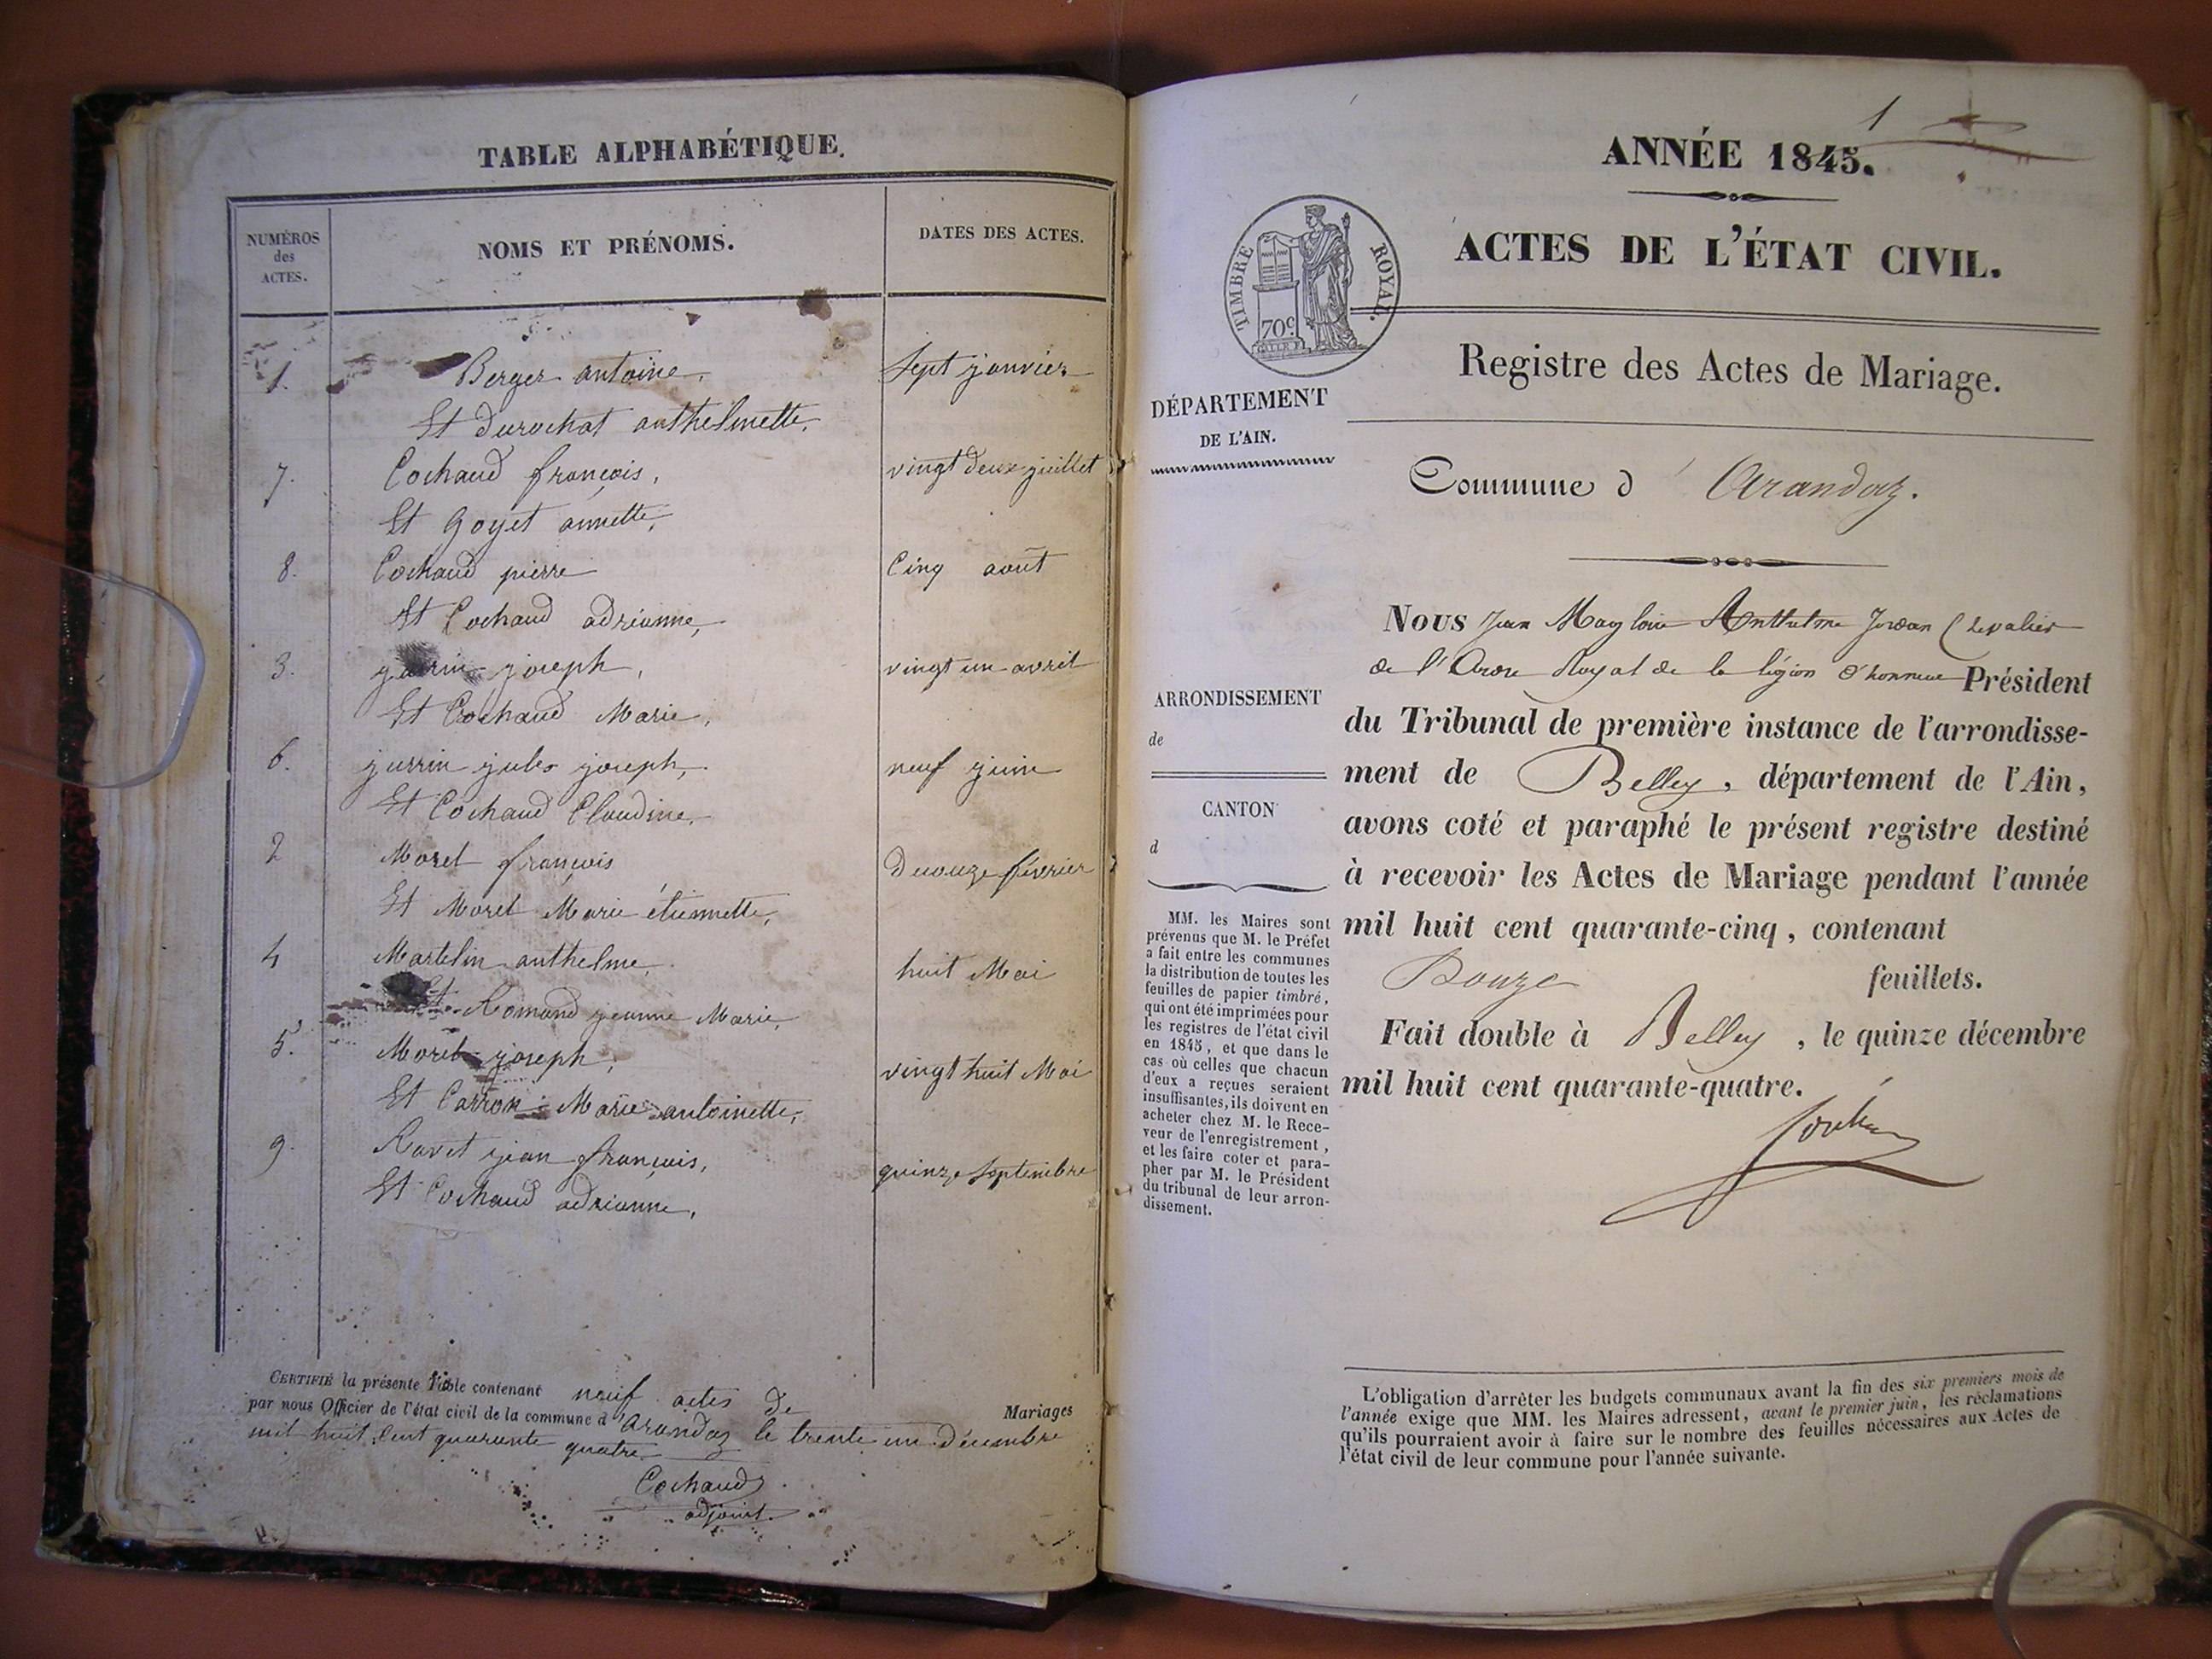 TABLE ALPHABÉTIQUE.
NUMÉROS
des
ACTES.
NOMS ET PRÉNOMS.
DATES DES ACTES.
1. Berger antoine, Sept janvier
Et durochat anthelmette,
7. Cochaud françois, vingt deux juillet
Et Goyet annette,
8. Cochaud pierre Cinq août
Et Cochaud adrianne,
3. joseph, vingt un avril
Et Cochaud Marie,
6. jurrin jules joseph, neuf juin
Et Cochaud Claudine,
2 Morel françois février
Et Morel Marie étiennette,
4 Martelin anthelme, huit Mai
Et Romand jeanne Marie,
5. Morel joseph, vingt huit Mai
Et Carron Marie antoinette,
9. Ravet jean françois, quinze Septembre
Et Cochaud adrianne,
CERTIFIÉ la présente Table contenant neuf actes de Mariages
par nous Officier de l'état civil de la commune d'Arandaz le trente un décembre
mil huit Cent quarante quatre
Cochaud
adjoint
1
ANNÉE 1845.
ACTES DE L'ÉTAT CIVIL.
TIMBRE ROYAL.
70c.
Registre des Actes de Mariage.
DÉPARTEMENT
DE L'AIN.
Commune d'Arandaz.
Nous Jean Anthelme Jordan Chevalier
de l'Ordre Royal de la légion d'honneur Président
du Tribunal de première instance de l'arrondisse-
ment de Belley, département de l'Ain,
avons coté et paraphé le présent registre destiné
à recevoir les Actes de Mariage pendant l'année
mil huit cent quarante-cinq, contenant
Douze feuillets.
Fait double à Belley, le quinze décembre
mil huit cent quarante-quatre.
ARRONDISSEMENT
de
CANTON
d
MM. les Maires sont
prévenus que M. le Préfet
a fait entre les communes
la distribution de toutes les
feuilles de papier timbré,
qui ont été imprimées pour
les registres de l'état civil
en 1845, et que dans le
cas où celles que chacun
d'eux a reçues seraient
insuffisantes, ils doivent en
acheter chez M. le Rece-
veur de l'enregistrement,
et les faire coter et para-
pher par M. le Président
du tribunal de leur arron-
dissement.
L'obligation d'arrêter les budgets communaux avant la fin des six premiers mois de
l'année exige que MM. les Maires adressent, avant le premier juin, les réclamations
qu'ils pourraient avoir à faire sur le nombre des feuilles nécessaires aux Actes de
l'état civil de leur commune pour l'année suivante.